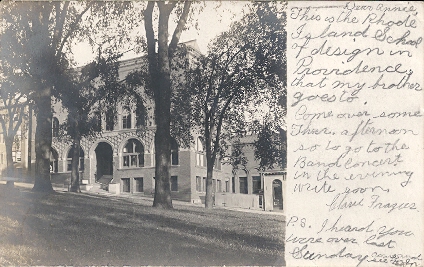 Dear Annie
This is the Rhode
Island School
of design in
Providence,
that my brother
goes to.
Come over some
Thur. afternoon
so to go to the
Band Concert
in the evening
write soon
P.S. I heard you
were over last
Sunday